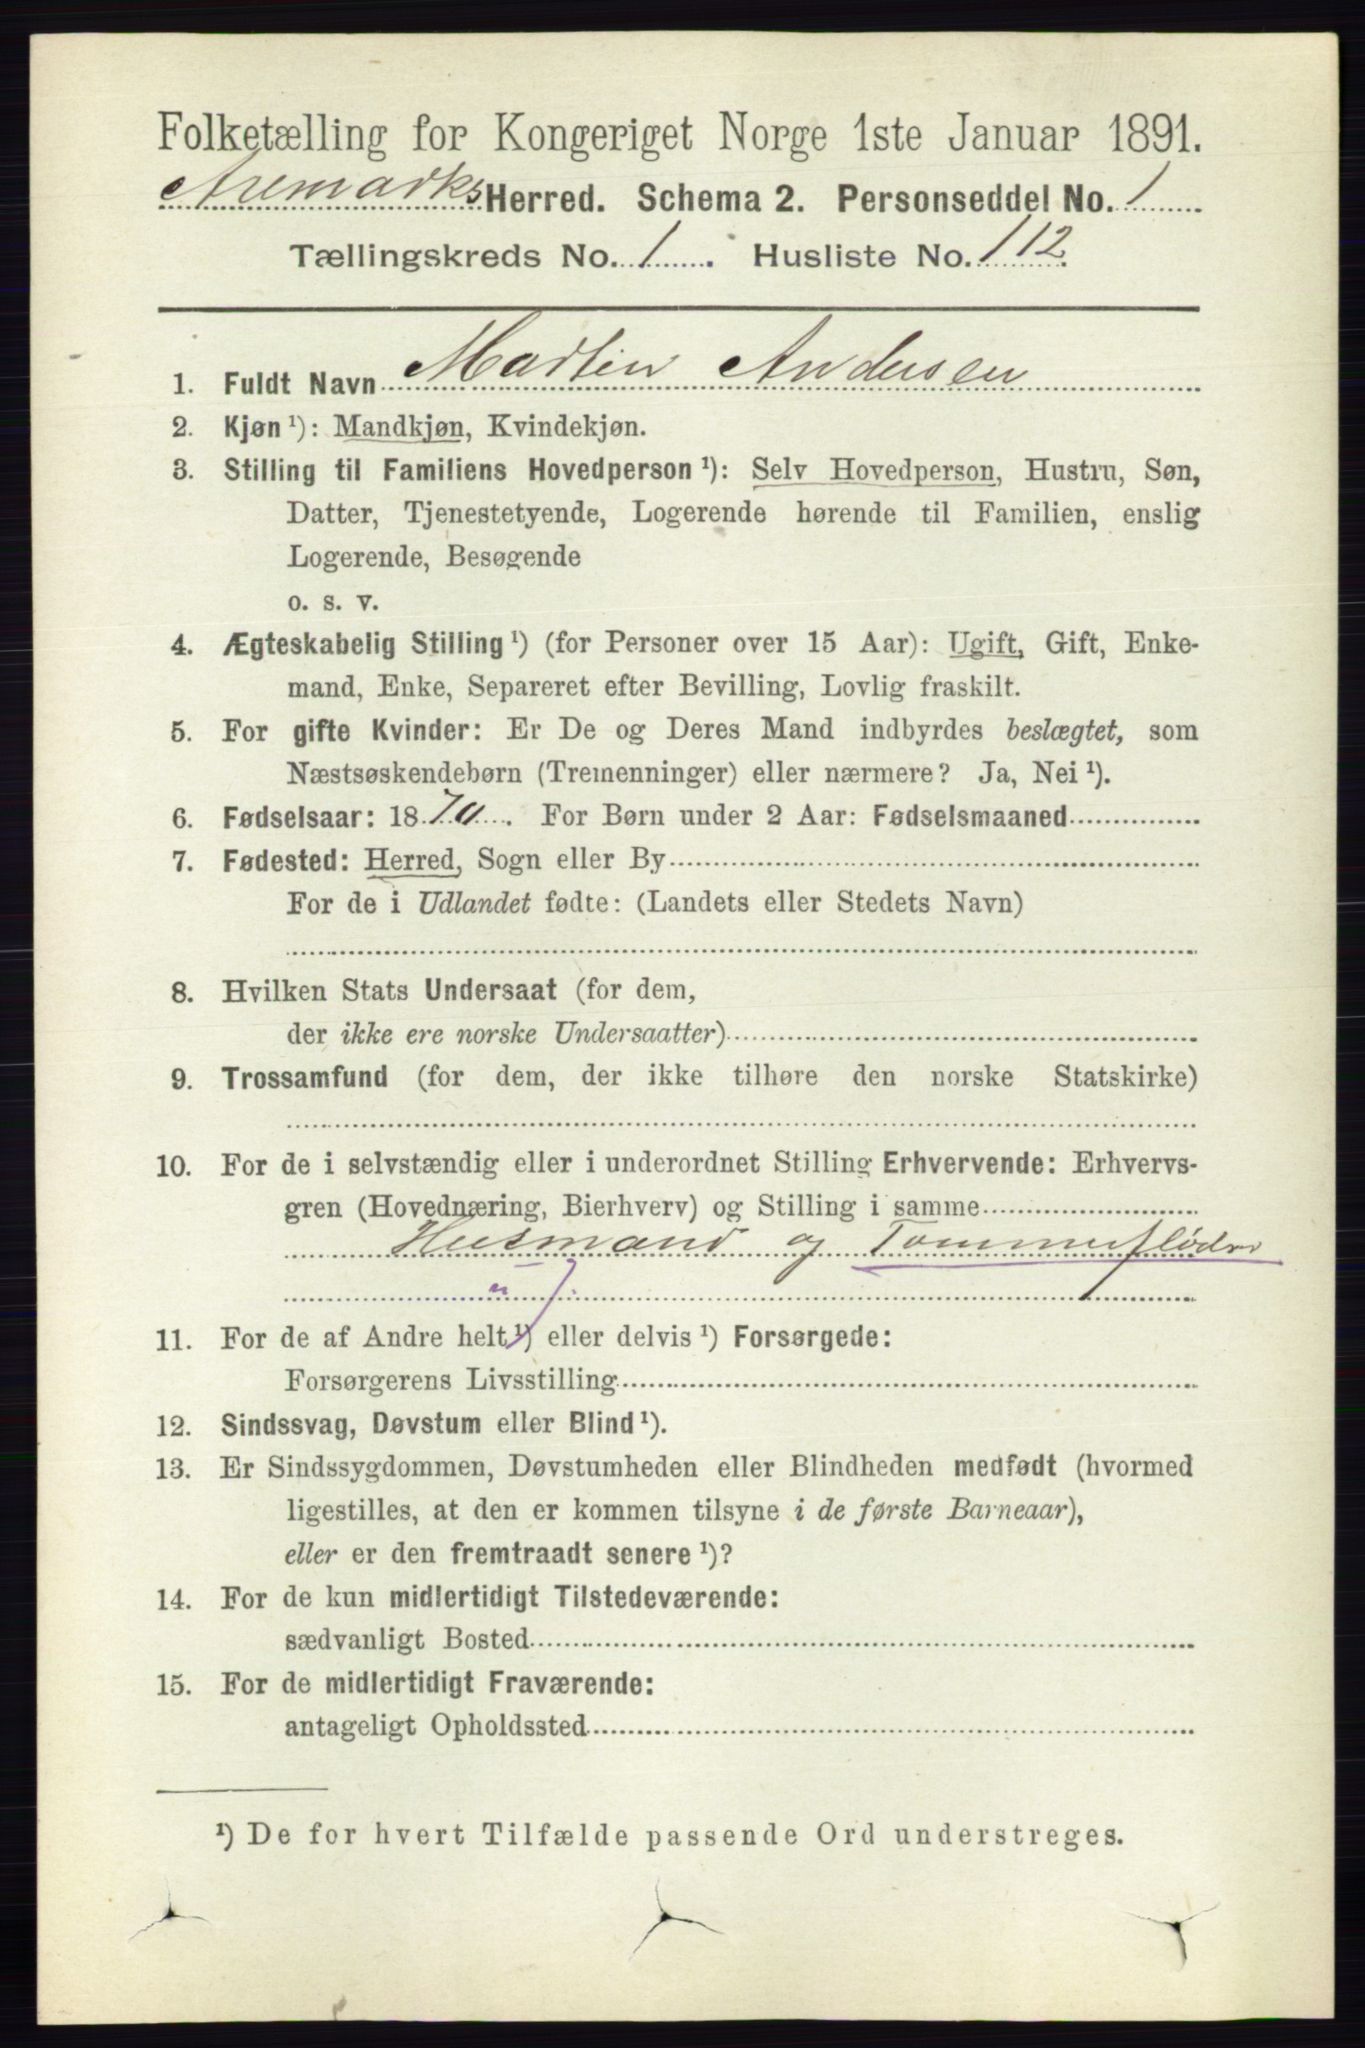 Folketælling for Kongeriget Norge 1ste Januar 1891.
Aremarks Herred. Schema 2. Personseddel No. 1
Tællingskreds No. 1. Husliste No. 112.
1. Fuldt Navn Martin Andersen
2. Kjøn ¹): Mandkjøn, Kvindekjøn.
3. Stilling til Familiens Hovedperson ¹): Selv Hovedperson, Hustru, Søn,
Datter, Tjenestetyende, Logerende hørende til Familien, enslig
Logerende, Besøgende
o. s. v.
4. Ægteskabelig Stilling ¹) (for Personer over 15 Aar): Ugift, Gift, Enke-
mand, Enke, Separeret efter Bevilling, Lovlig fraskilt.
5. For gifte Kvinder: Er De og Deres Mand indbyrdes beslægtet, som
Næstsøskendebørn (Tremenninger) eller nærmere? Ja, Nei ¹).
6. Fødselsaar: 1870. For Børn under 2 Aar: Fødselsmaaned
7. Fødested: Herred, Sogn eller By
For de i Udlandet fødte: (Landets eller Stedets Navn)
8. Hvilken Stats Undersaat (for dem,
der ikke ere norske Undersaatter)
9. Trossamfund (for dem, der ikke tilhøre den norske Statskirke)
10. For de i selvstændig eller i underordnet Stilling Erhvervende: Erhvervs-
gren (Hovednæring, Bierhverv) og Stilling i samme
Husmand og Tømmerfløder
11. For de af Andre helt ¹) eller delvis ¹) Forsørgede:
Forsørgerens Livsstilling
12. Sindssvag, Døvstum eller Blind ¹).
13. Er Sindssygdommen, Døvstumheden eller Blindheden medfødt (hvormed
ligestilles, at den er kommen tilsyne i de første Barneaar),
eller er den fremtraadt senere ¹)?
14. For de kun midlertidigt Tilstedeværende:
sædvanligt Bosted
15. For de midlertidigt Fraværende:
antageligt Opholdssted
¹) De for hvert Tilfælde passende Ord understreges.